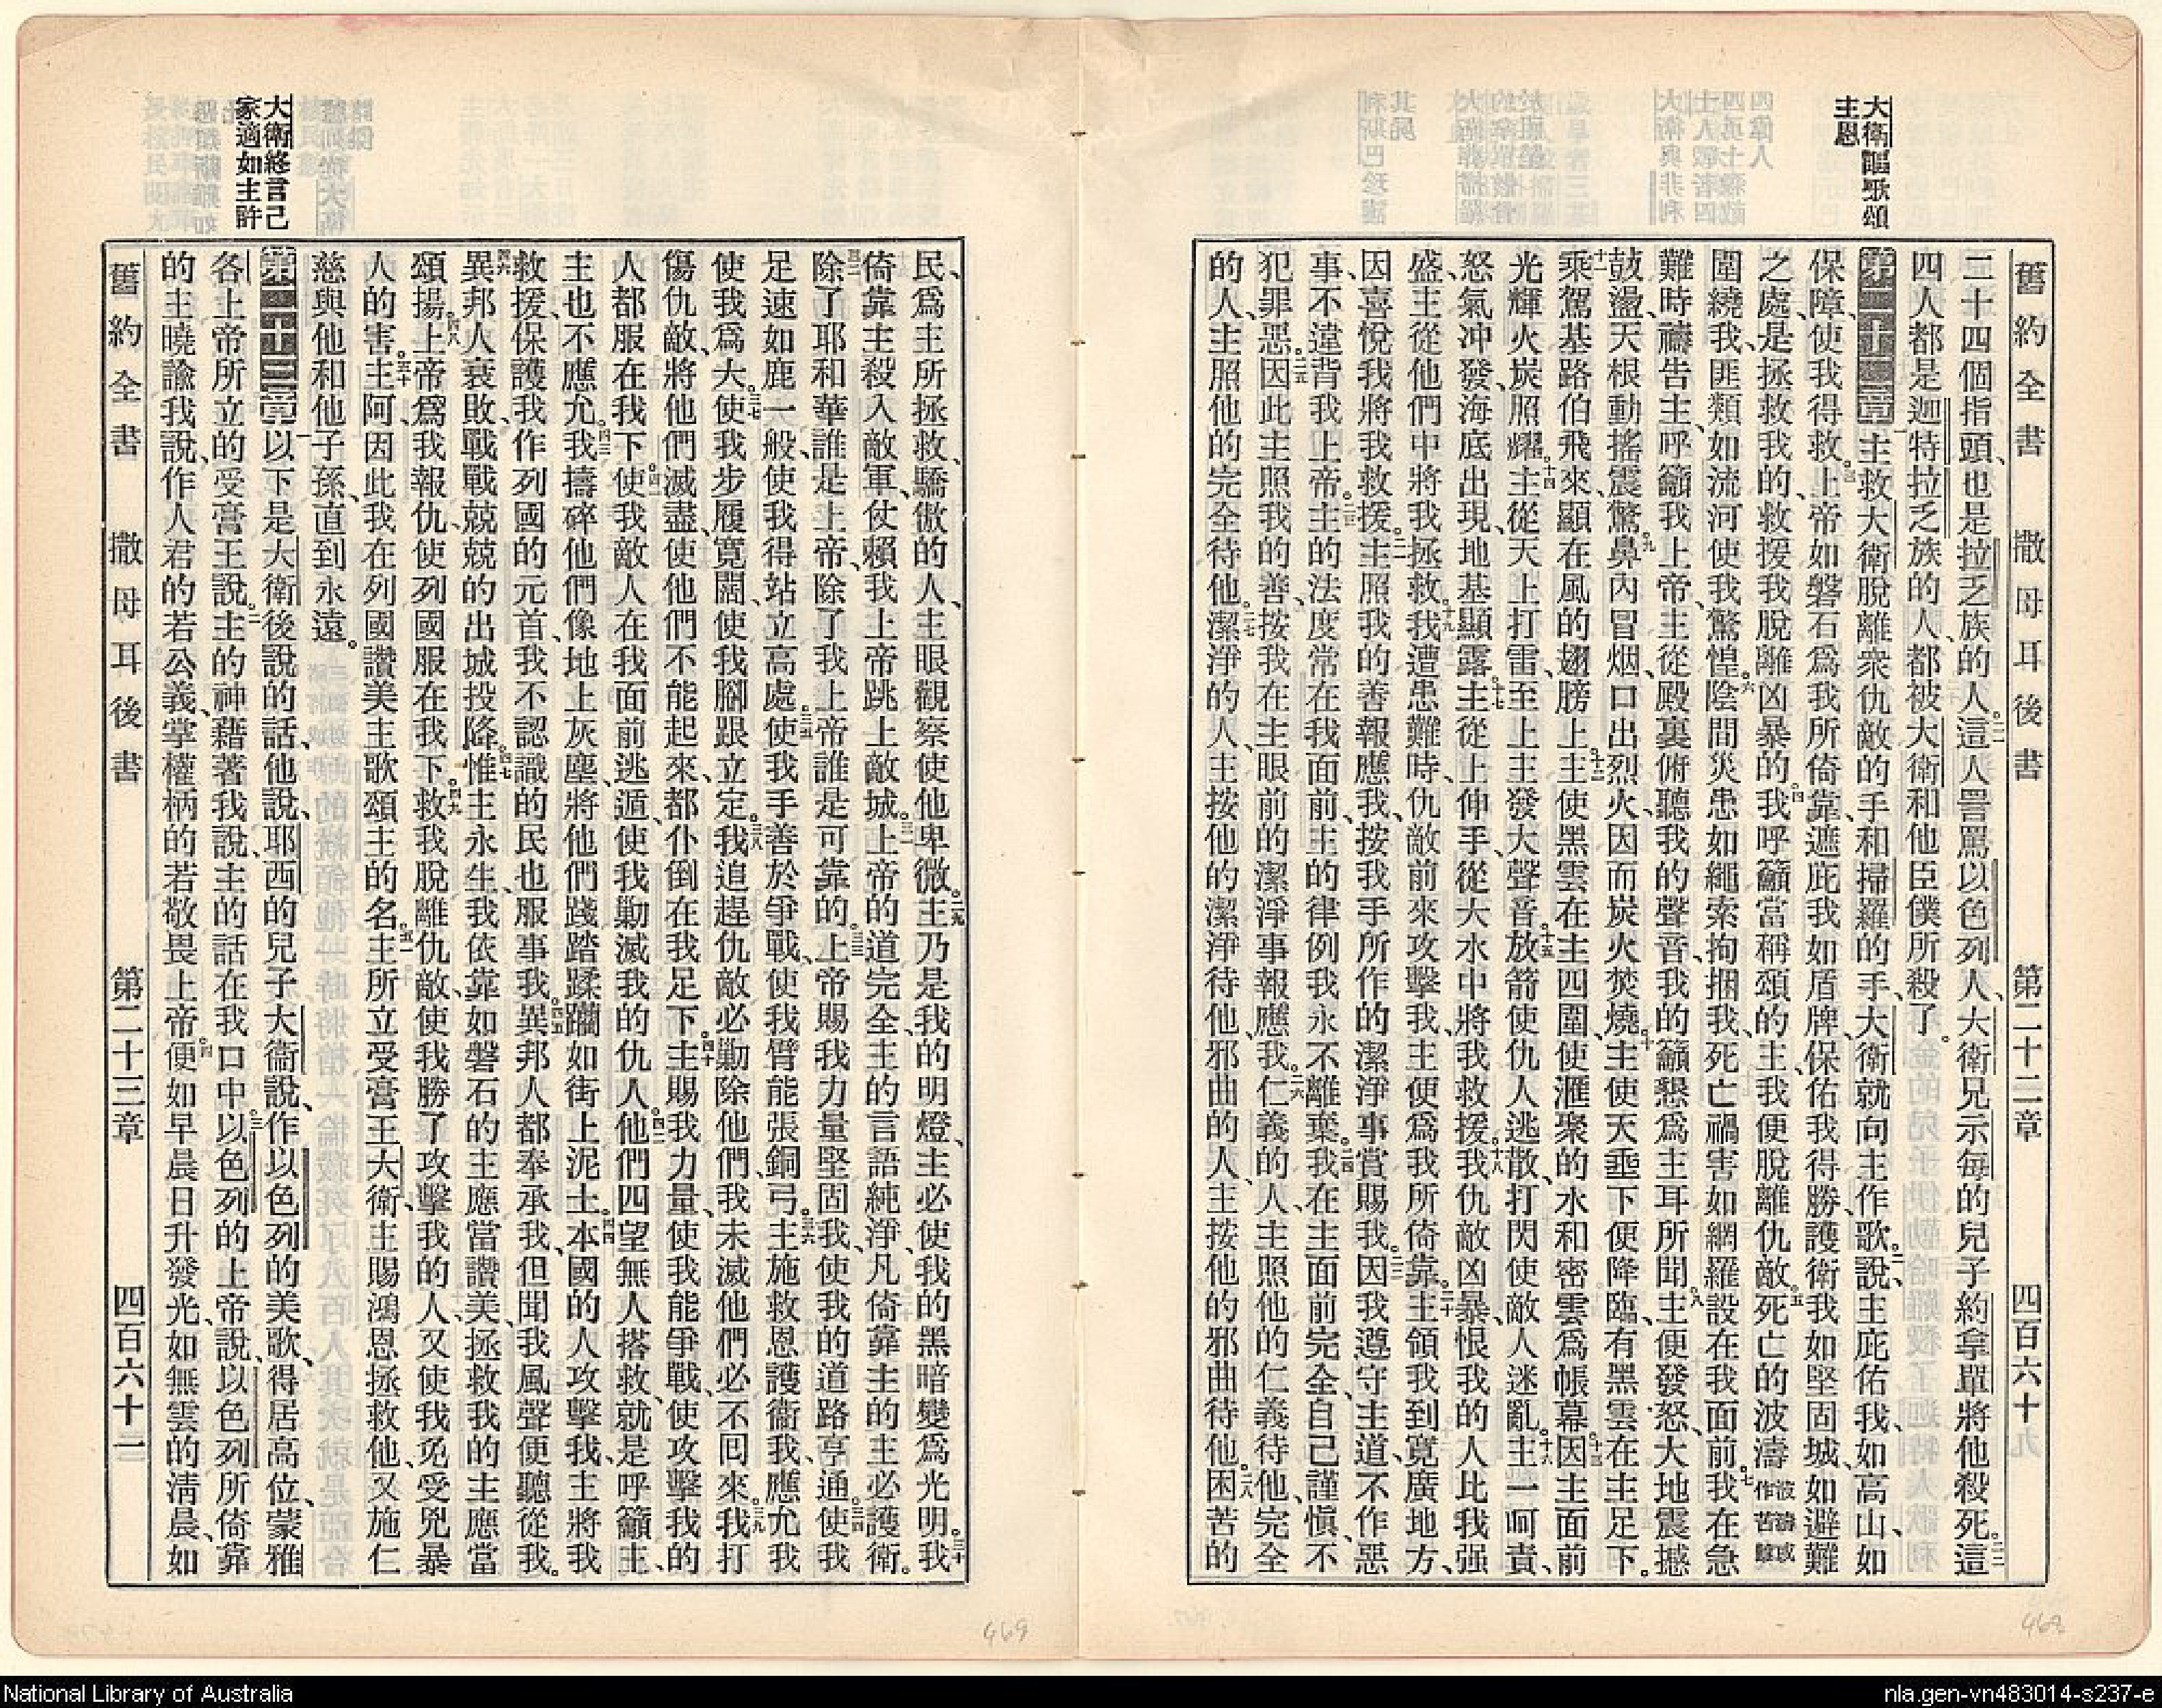 大衛謳歌頌
主恩
舊約全書 撒母耳後書 第二十二章 四百六十九
二十四個指頭、也是拉乏族的人。二一這人詈罵以色列人、大衛兄示每的兒子約拿單將他殺死。二二這
四人都是迦特拉乏族的人、都被大衛和他臣僕所殺了。
第二十二章 一主救大衛脫離衆仇敵的手、和掃羅的手、大衛就向主作歌。二說、主庇佑我、如高山、如
保障、使我得救。三上帝如磐石爲我所倚靠、遮庇我如盾牌、保佑我得勝、護衛我如堅固城、如避難
之處、是拯救我的、救援我脫離凶暴的。四我呼籲當稱頌的主、我便脫離仇敵。五死亡的波濤波濤或作苦難
圍繞我、匪類如流河使我驚惶。六陰間災患如繩索拘捆我、死亡禍害如網羅設在我面前。七我在急
難時禱告主、呼籲我上帝、主從殿裏俯聽我的聲音、我的籲懇爲主耳所聞。八主便發怒、大地震撼
鼓盪、天根動搖震驚。九鼻內冒烟、口出烈火、因而炭火焚燒。十主使天垂下便降臨、有黑雲在主足下。
十一乘駕基路伯飛來、顯在風的翅膀上。十二主使黑雲在主四圍、使滙聚的水和密雲爲帳幕。十三因主面前
光輝、火炭照耀。十四主從天上打雷、至上主發大聲音。十五放箭使仇人逃散、打閃使敵人迷亂。十六主一呵責、
怒氣冲發、海底出現、地基顯露。十七主從上伸手、從大水中將我救援。十八我仇敵凶暴、恨我的人比我强
盛、主從他們中將我拯救。十九我遭患難時、仇敵前來攻擊我、主便爲我所倚靠。二十主領我到寬廣地方、
因喜悅我將我救援。二一主照我的善報應我、按我手所作的潔淨事賞賜我。二二因我遵守主道、不作惡
事、不違背我上帝。二三主的法度常在我面前、主的律例我永不離棄。二四我在主面前完全、自己謹愼、不
犯罪惡。二五因此主照我的善、按我在主眼前的潔淨事報應我。二六仁義的人、主照他的仁義待他、完全
的人、主照他的完全待他。二七潔淨的人、主按他的潔淨待他、邪曲的人、主按他的邪曲待他。二八困苦的
民、爲主所拯救、驕傲的人、主眼觀察使他卑微。二九主乃是我的明燈、主必使我的黑暗變爲光明。三十我
倚靠主殺入敵軍、仗賴我上帝跳上敵城。三一上帝的道完全、主的言語純淨、凡倚靠主的主必護衛。
三二除了耶和華誰是上帝、除了我上帝誰是可靠的。三三上帝賜我力量堅固我、使我的道路亨通。三四使我
足速如鹿一般、使我得站立高處。三五使我手善於爭戰、使我臂能張銅弓。三六主施救恩護衛我、應允我
使我爲大。三七使我步履寬闊、使我腳跟立定。三八我追趕仇敵必勦除他們、我未滅他們必不囘來。三九我打
傷仇敵、將他們滅盡、使他們不能起來、都仆倒在我足下。四十主賜我力量、使我能爭戰、使攻擊我的
人都服在我下。四一使我敵人在我面前逃遁、使我勦滅我的仇人。四二他們四望無人搭救、就是呼籲主、
主也不應允。四三我擣碎他們像地上灰塵、將他們踐踏蹂躪如街上泥土。四四本國的人攻擊我、主將我
救援、保護我作列國的元首、我不認識的民也服事我。四五異邦人都奉承我、但聞我風聲便聽從我。
四六異邦人衰敗、戰戰兢兢的出城投降。四七惟主永生、我依靠如磐石的主應當讚美、拯救我的主應當
頌揚。四八上帝爲我報仇、使列國服在我下。四九救我脫離仇敵、使我勝了攻擊我的人、又使我免受兇暴
人的害。五十主阿、因此我在列國讚美主、歌頌主的名。五一主所立受膏王大衛、主賜鴻恩拯救他、又施仁
慈與他和他子孫、直到永遠。
大衛終言己
家適如主許
第二十三章 一以下是大衛後說的話、他說、耶西的兒子大衛說、作以色列的美歌、得居高位、蒙雅
各上帝所立的受膏王說。二主的神藉著我說、主的話在我口中。三以色列的上帝說、以色列所倚靠
的主曉諭我說、作人君的若公義、掌權柄的若敬畏上帝。四便如早晨日升發光、如無雲的淸晨、如
舊約全書 撒母耳後書 第二十三章 四百六十一
469
468
National Library of Australia
nla.gen-vn483014-s237-e